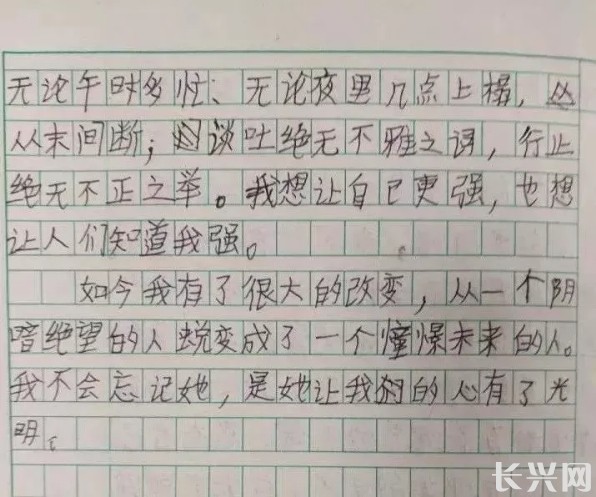 无论午时多忙、无论夜里几点上榻,
从末间断;谈吐绝无不雅之词,行止
绝无不正之举。我想让自己更强,也想
让人们知道我强。
如今我有了很大的改变,从一个阴
暗绝望的人蜕变成了一个憧憬未来的人。
我不会忘记她,是她让我的心有了光
明。
长兴网